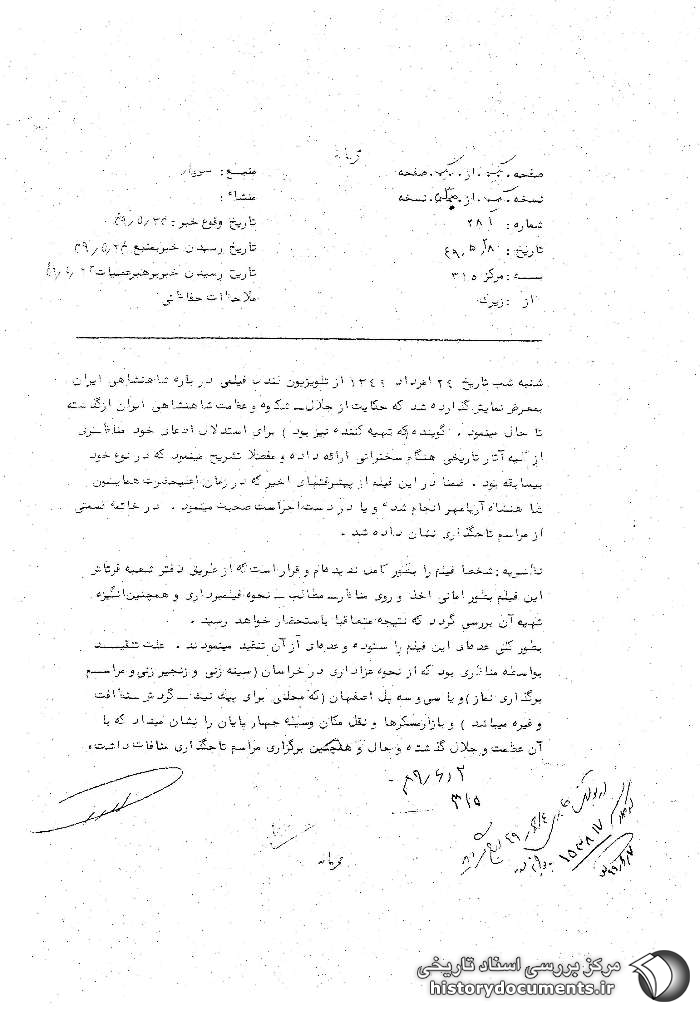 محرمانه
صفحه یک از یک صفحه
نسخه یک از نسخه
شماره: ۲۸۱
تاریخ: ۴۹٫۵٫۲۸
بسه: مرکز ۳۱۵
از: زیرک
منبع:
منشاء:
تاریخ وقوع خبر: ۴۹٫۵٫۲۴
تاریخ رسیدن خبر بمنبع ۴۹٫۵٫۲۴
تاریخ رسیدن خبر برهبر عملیات
ملاحظات حفاظتی:
شنبه شب تاریخ ۲۴ امرداد ۱۳۴۹ از تلویزیون فیلمی در باره شاهنشاهی ایران
بمعرض نمایش گذارده شد که حکایت از جلال ـ شکوه و عظمت شاهنشاهی ایران از گذشته
تا حال مینمود . گوینده (که تهیه کننده نیز بود ) برای استدلال ادعای خود مناظری
از کلیه آثار تاریخی هنگام سخنرانی ارائه داده و مفصلا تشریح مینمود که در نوع خود
بیسابقه بود . ضمنا در این فیلم از پیشرفتهای اخیر که در زمان اعلیحضرت همایون
شاهنشاه آریامهر انجام شده و یا در دست اجراست صحبت مینمود . در خاتمه قسمتی
از مراسم تاجگذاری نشان داده شد .
نظریه : شخصا فیلم را بطور کامل ندیده‌ام و قرار است که از طریق دفتر
این فیلم بطور امانی اخذ و روی مناظر ـ مطالب ـ نحوه فیلمبرداری و همچنین انگیزه
تهیه آن بررسی گردد که نتیجه متعاقبا باستحضار خواهد رسید .
بطور کلی عده‌ای این فیلم را ستوده و عده‌ای از آن تنقید مینمودند . علت تنقید
بواسطه مناظری بود که از نحوه عزاداری در خراسان (سینه زنی و زنجیر زنی و مراسم
برگذاری نماز) و یا سی و سه پل اصفهان (که محلی برای پیک نیک ـ گردش
و غیره میباشد ) و بازار مسگرها و نقل مکان وسیله چهار پایان را نشان میداد که با
آن عظمت و جلال گذشته و حال و همچنین برگزاری مراسم تاجگذاری منافات داشت.
۴۹٫۶٫۲
۳۱۵
محرمانه
۱۵۳۸۱۷
مرکز بررسی اسناد تاریخی
historydocuments.ir